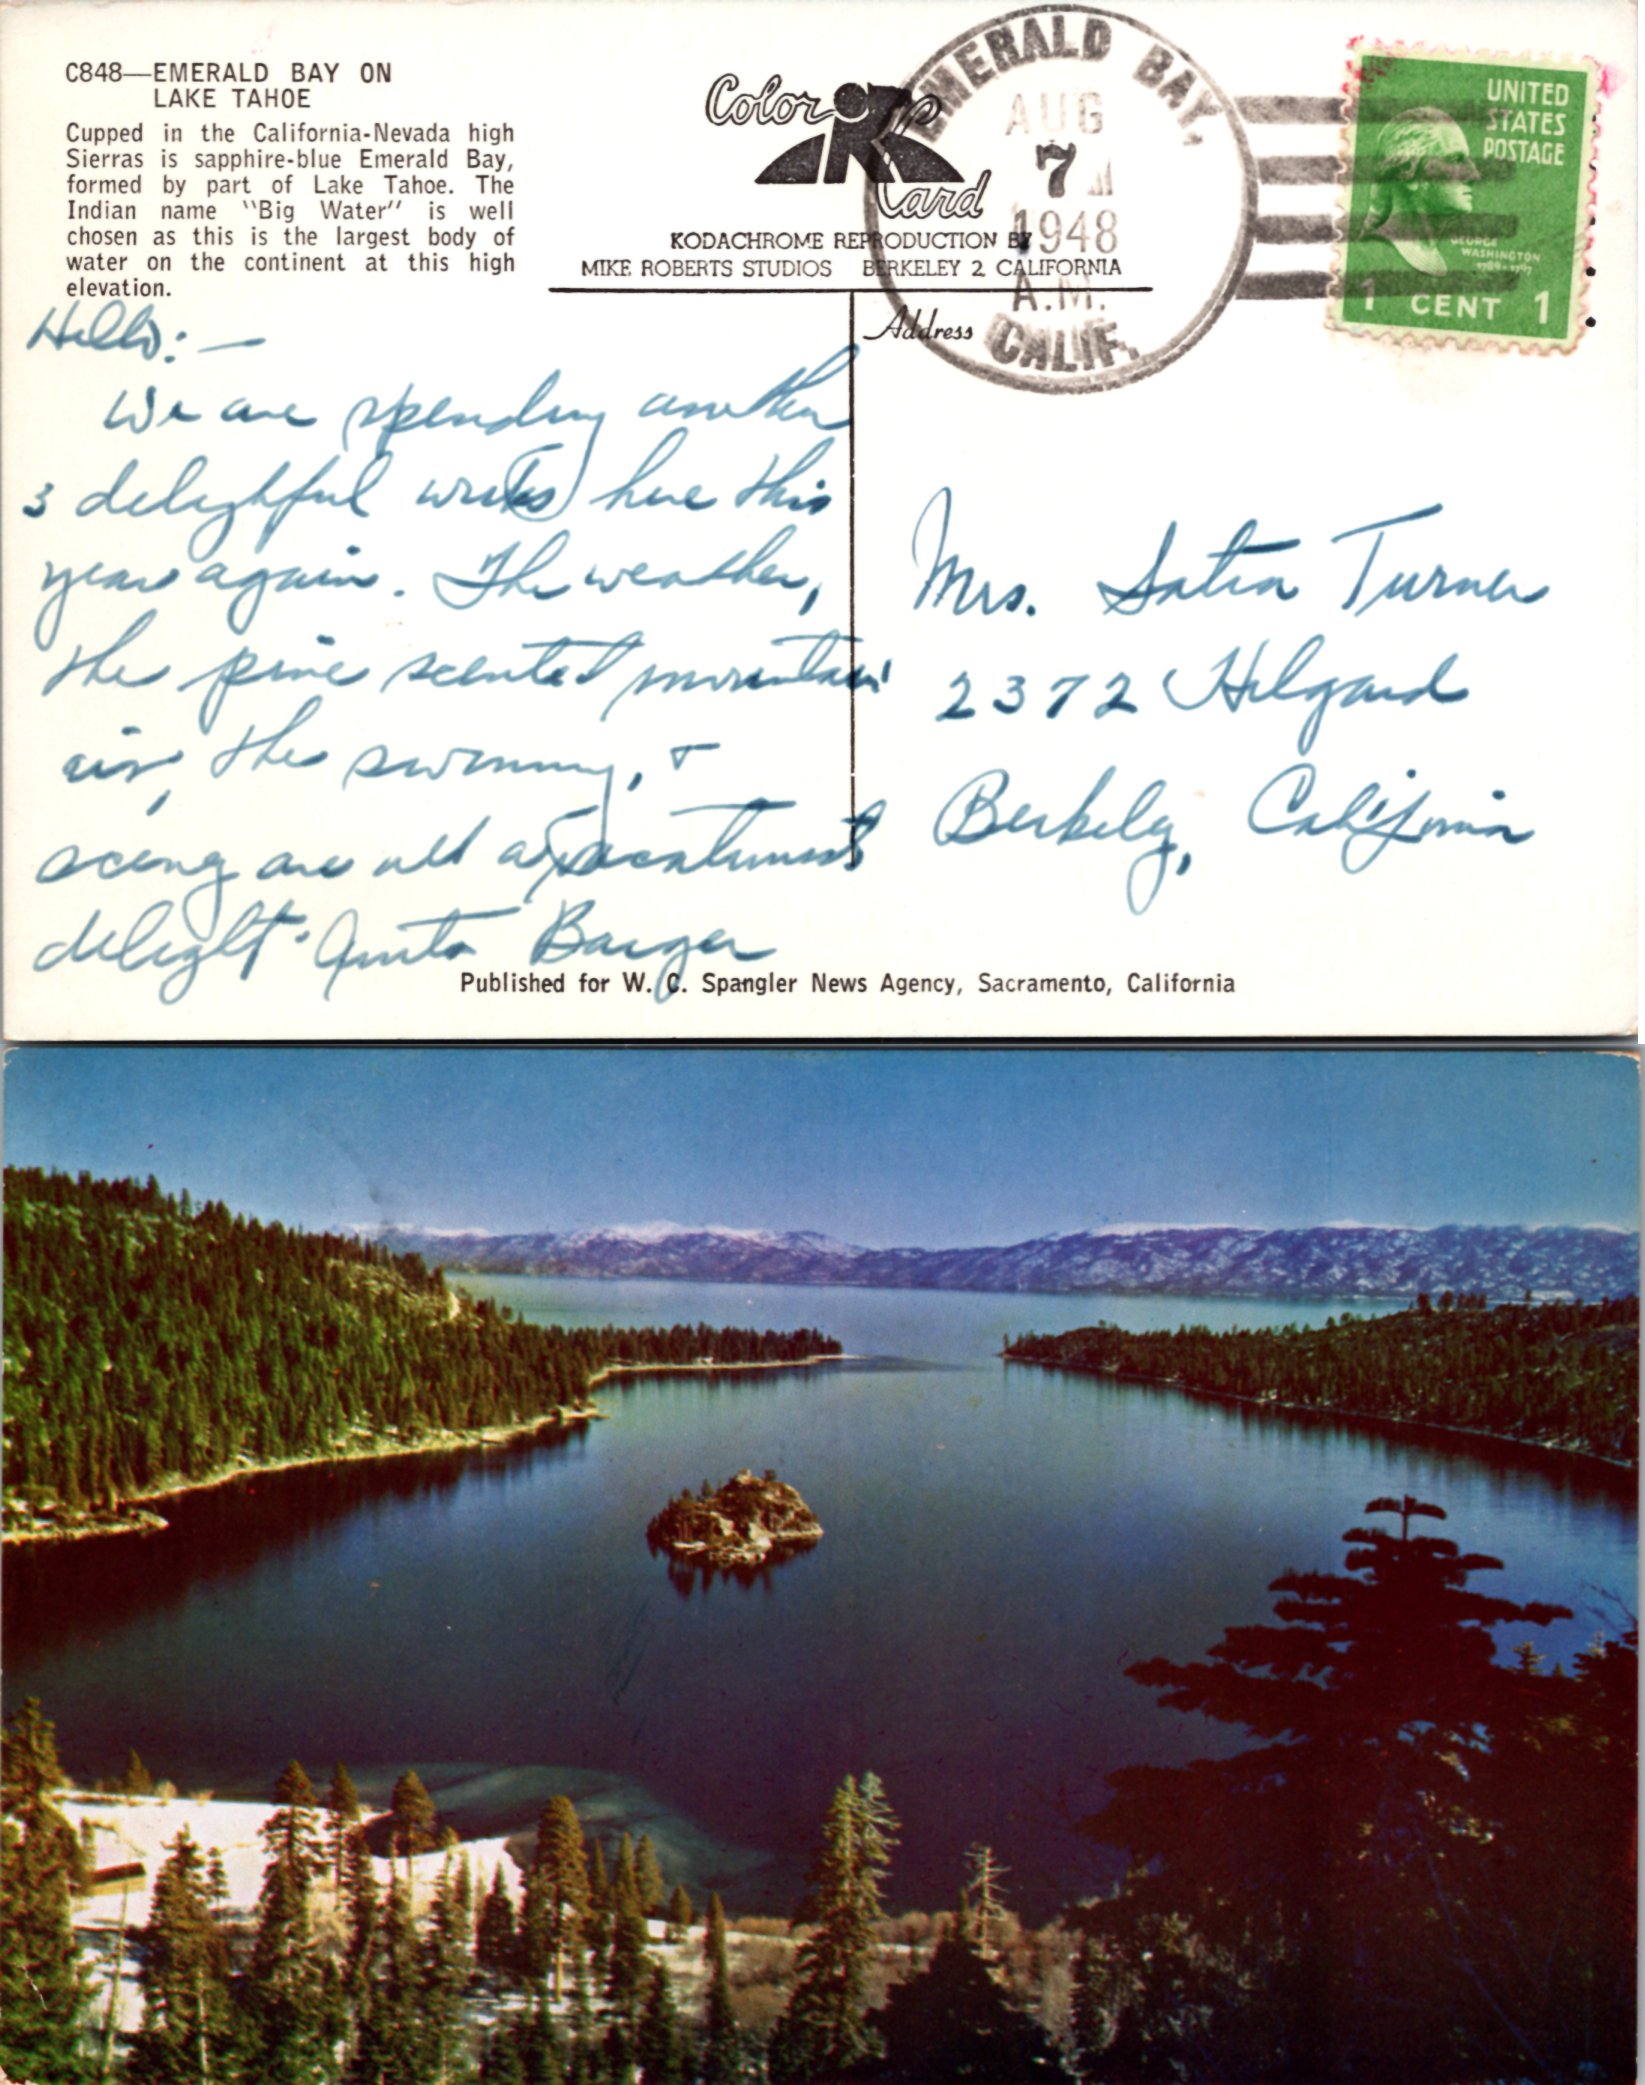 C848—EMERALD BAY ON
LAKE TAHOE
Cupped in the California-Nevada high
Sierras is sapphire-blue Emerald Bay,
formed by part of Lake Tahoe. The
Indian name "Big Water" is well
chosen as this is the largest body of
water on the continent at this high
elevation.
Color
Card
KODACHROME REPRODUCTION BY
MIKE ROBERTS STUDIOS BERKELEY 2 CALIFORNIA
EMERALD BAY,
AUG
7
1948
A.M.
CALIF.
UNITED
STATES
POSTAGE
GEORGE
WASHINGTON
1789-1797
1 CENT 1
Address
Hello: —
We are spending another
3 delightful weeks here this
year again. The weather,
the pine scented mountain
air, the swimming, +
scenery are all a vacationist's
delight. Anita Barger
Mrs. Turner
2372 Hilgard
Berkeley, California
Published for W. C. Spangler News Agency, Sacramento, California